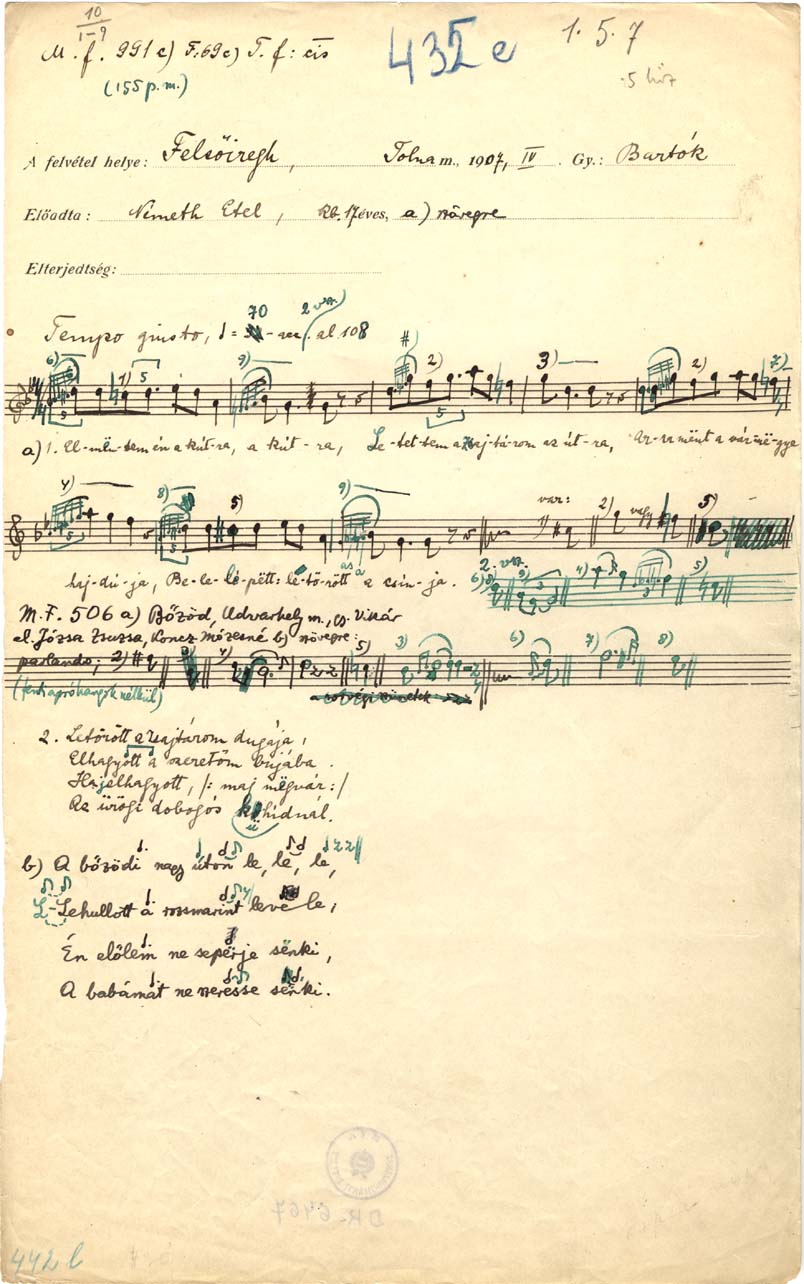 10
1-9
M. f. 991 c) F. 69 c) T. f: cis
(155 p.m.)
435 e
1. 5. 7
A felvétel helye: Felsőiregh, Tolna m., 1907, IV. Gy.: Bartók
Előadta: Németh Etel, kb. 17 éves, a) szövegre
Elterjedtség:
Tempo giusto,
70
al 108
a) 1. El-mën-tem én a kút-ra, a kút-ra, Le-tet-tem a saj-tá-rom az út-ra, Ar-ra mënt a vár-më-gye
haj-dú-ja, Be-le-lé-pëtt: lë-tö-rött a csín-ja.
var:
2. vsz.
M. F. 506 a) Bőzöd, Udvarhely m., gy. Vikár
el. Józsa Zsuzsa, Koncz Mózesné b) szövegre:
parlando;
(fenti apróhangok nélkül)
2. Letörött a sajtárom dugája,
Elhagyott a szeretőm bújába.
Ha elhagyott, /: maj mëgvár :/
Az ürögi dobogós kűhídnál.
b) A bőződi nagy úton le, le, le,
L-Lehullott a rozsmarint levele,
Én előlem ne seperje sënki,
A babámat ne szeresse sënki.
DR-6467
442 l